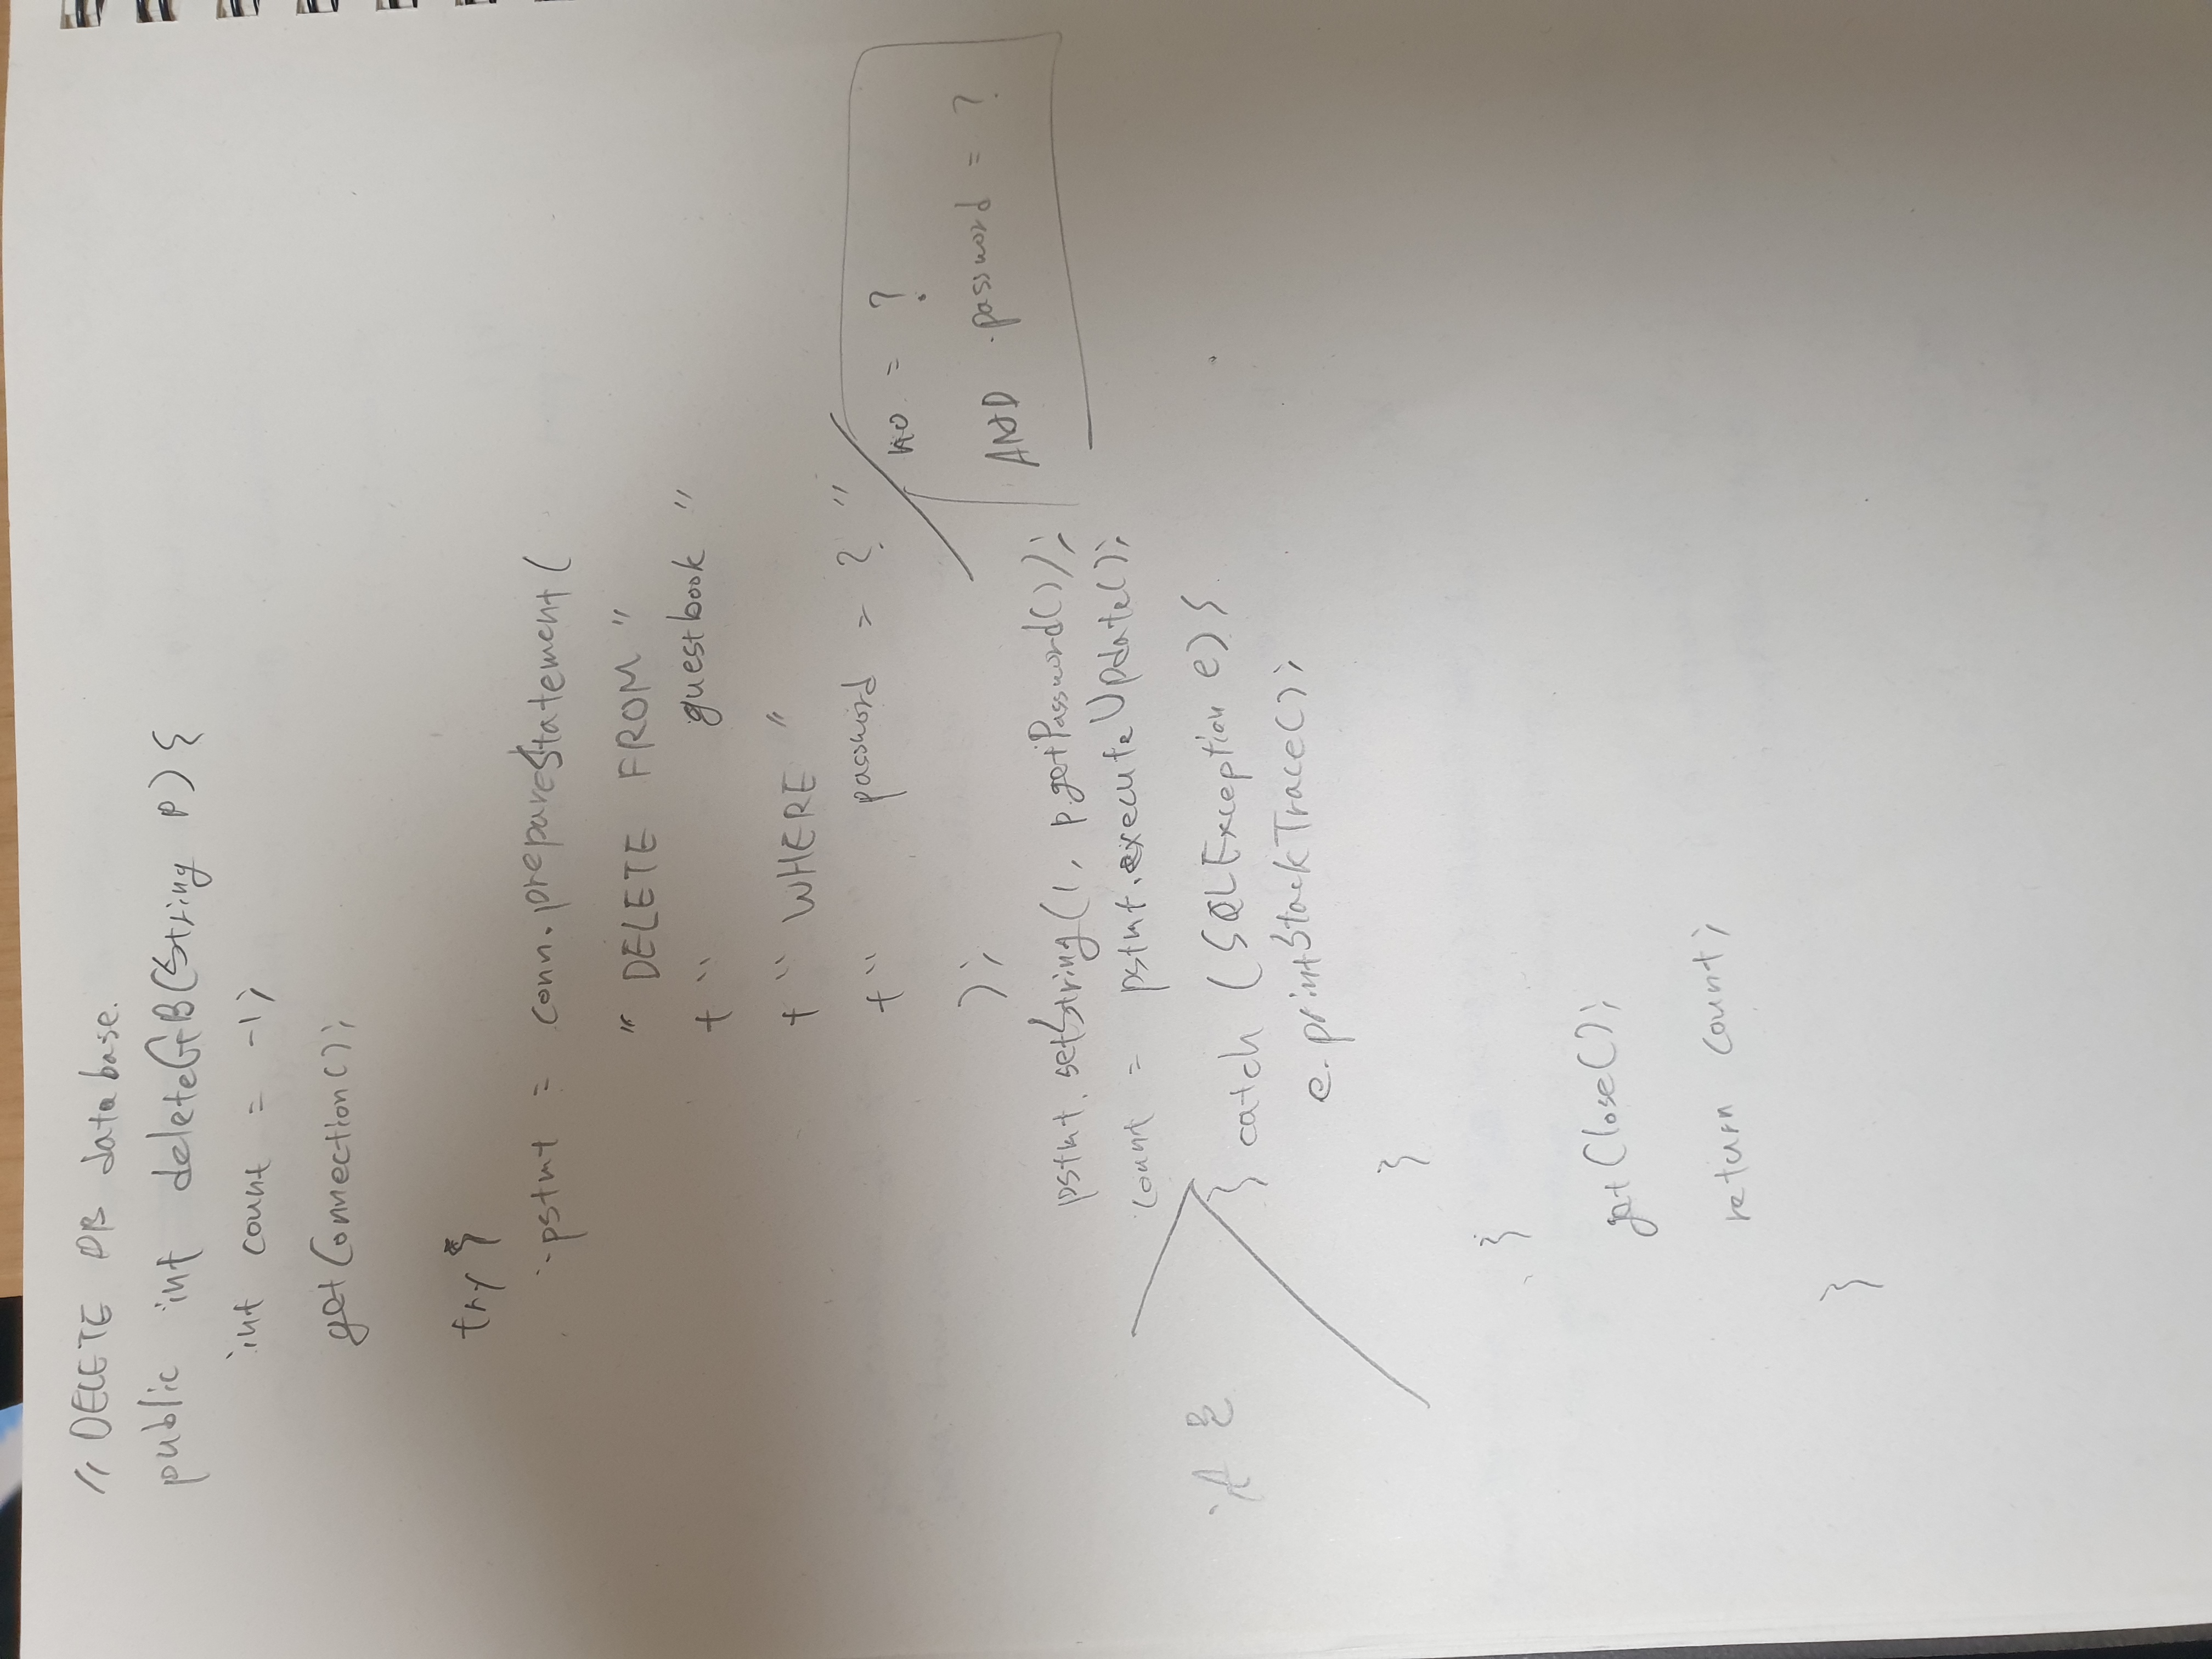 // DELETE DB database.
public int deleteGB(String p) {
int count = -1;
getConnection();
try {
pstmt = conn.prepareStatement(
" DELETE FROM "
+ " guestbook "
+ " WHERE "
+ " password = ? "
no = ?
AND password = ?
);
pstmt.setString(1, p.getPassword());
count = pstmt.executeUpdate();
} catch (SQLException e) {
e.printStackTrace();
}
}
getClose();
return count;
}